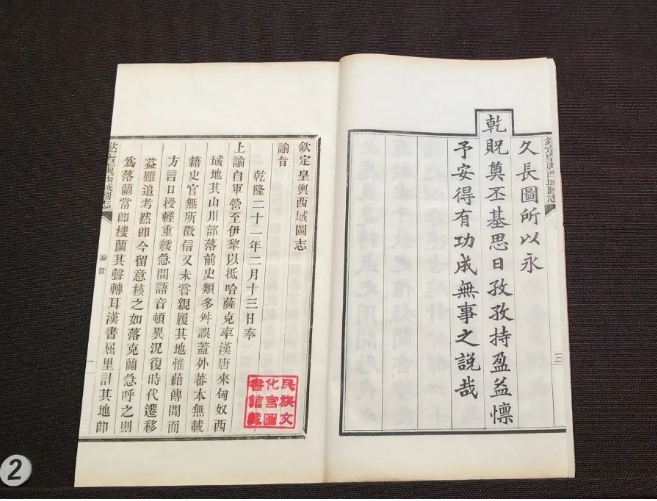 欽定皇輿西域圖志
三
久長圖所以永
乾貺奠丕基思日孜孜持盈益懍
予安得有功成無事之說哉
欽定皇輿西域圖志
諭旨
乾隆二十一年二月十三日奉
上諭自軍營至伊犂以抵哈薩克率漢唐來匈奴西
域地其山川部落前史類多舛誤蓋外蕃本無載
籍史官無所徵信又未嘗親履其地惟藉傳聞而
方言口授輕重緩急間語音頓異況復時代遷移
益難追考然即今留意核之如落克蘭急呼之則
爲落蘭當即樓蘭其聲轉耳漢書屈里計其地即
欽定皇輿西域圖志
諭旨
一
民族文
化宮圖
書館藏
2